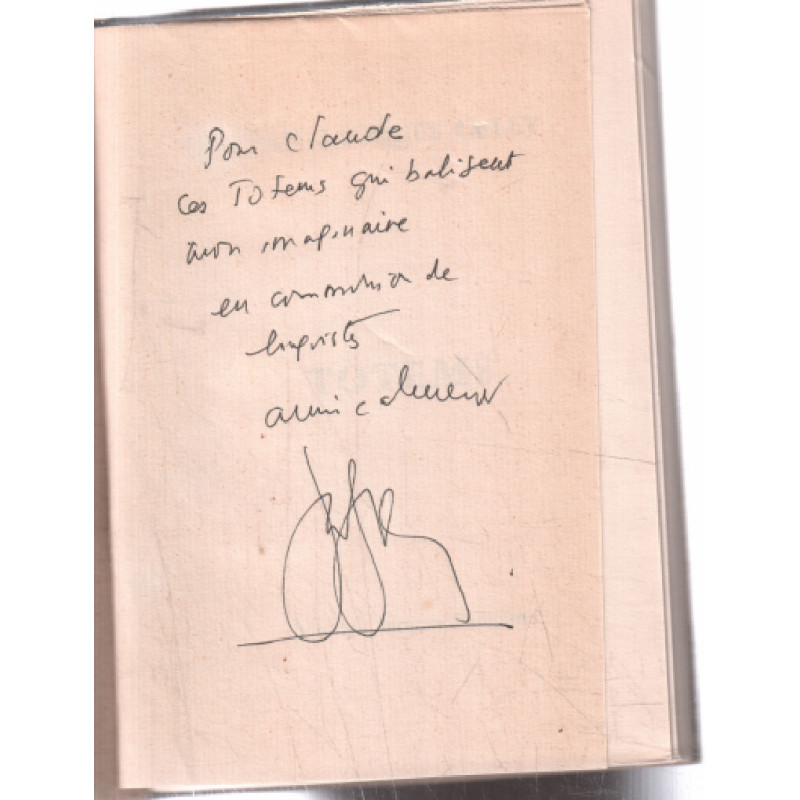 Pour Claude
ces Totems qui balisent
mon imaginaire
en communion de
linguistes
amicalement